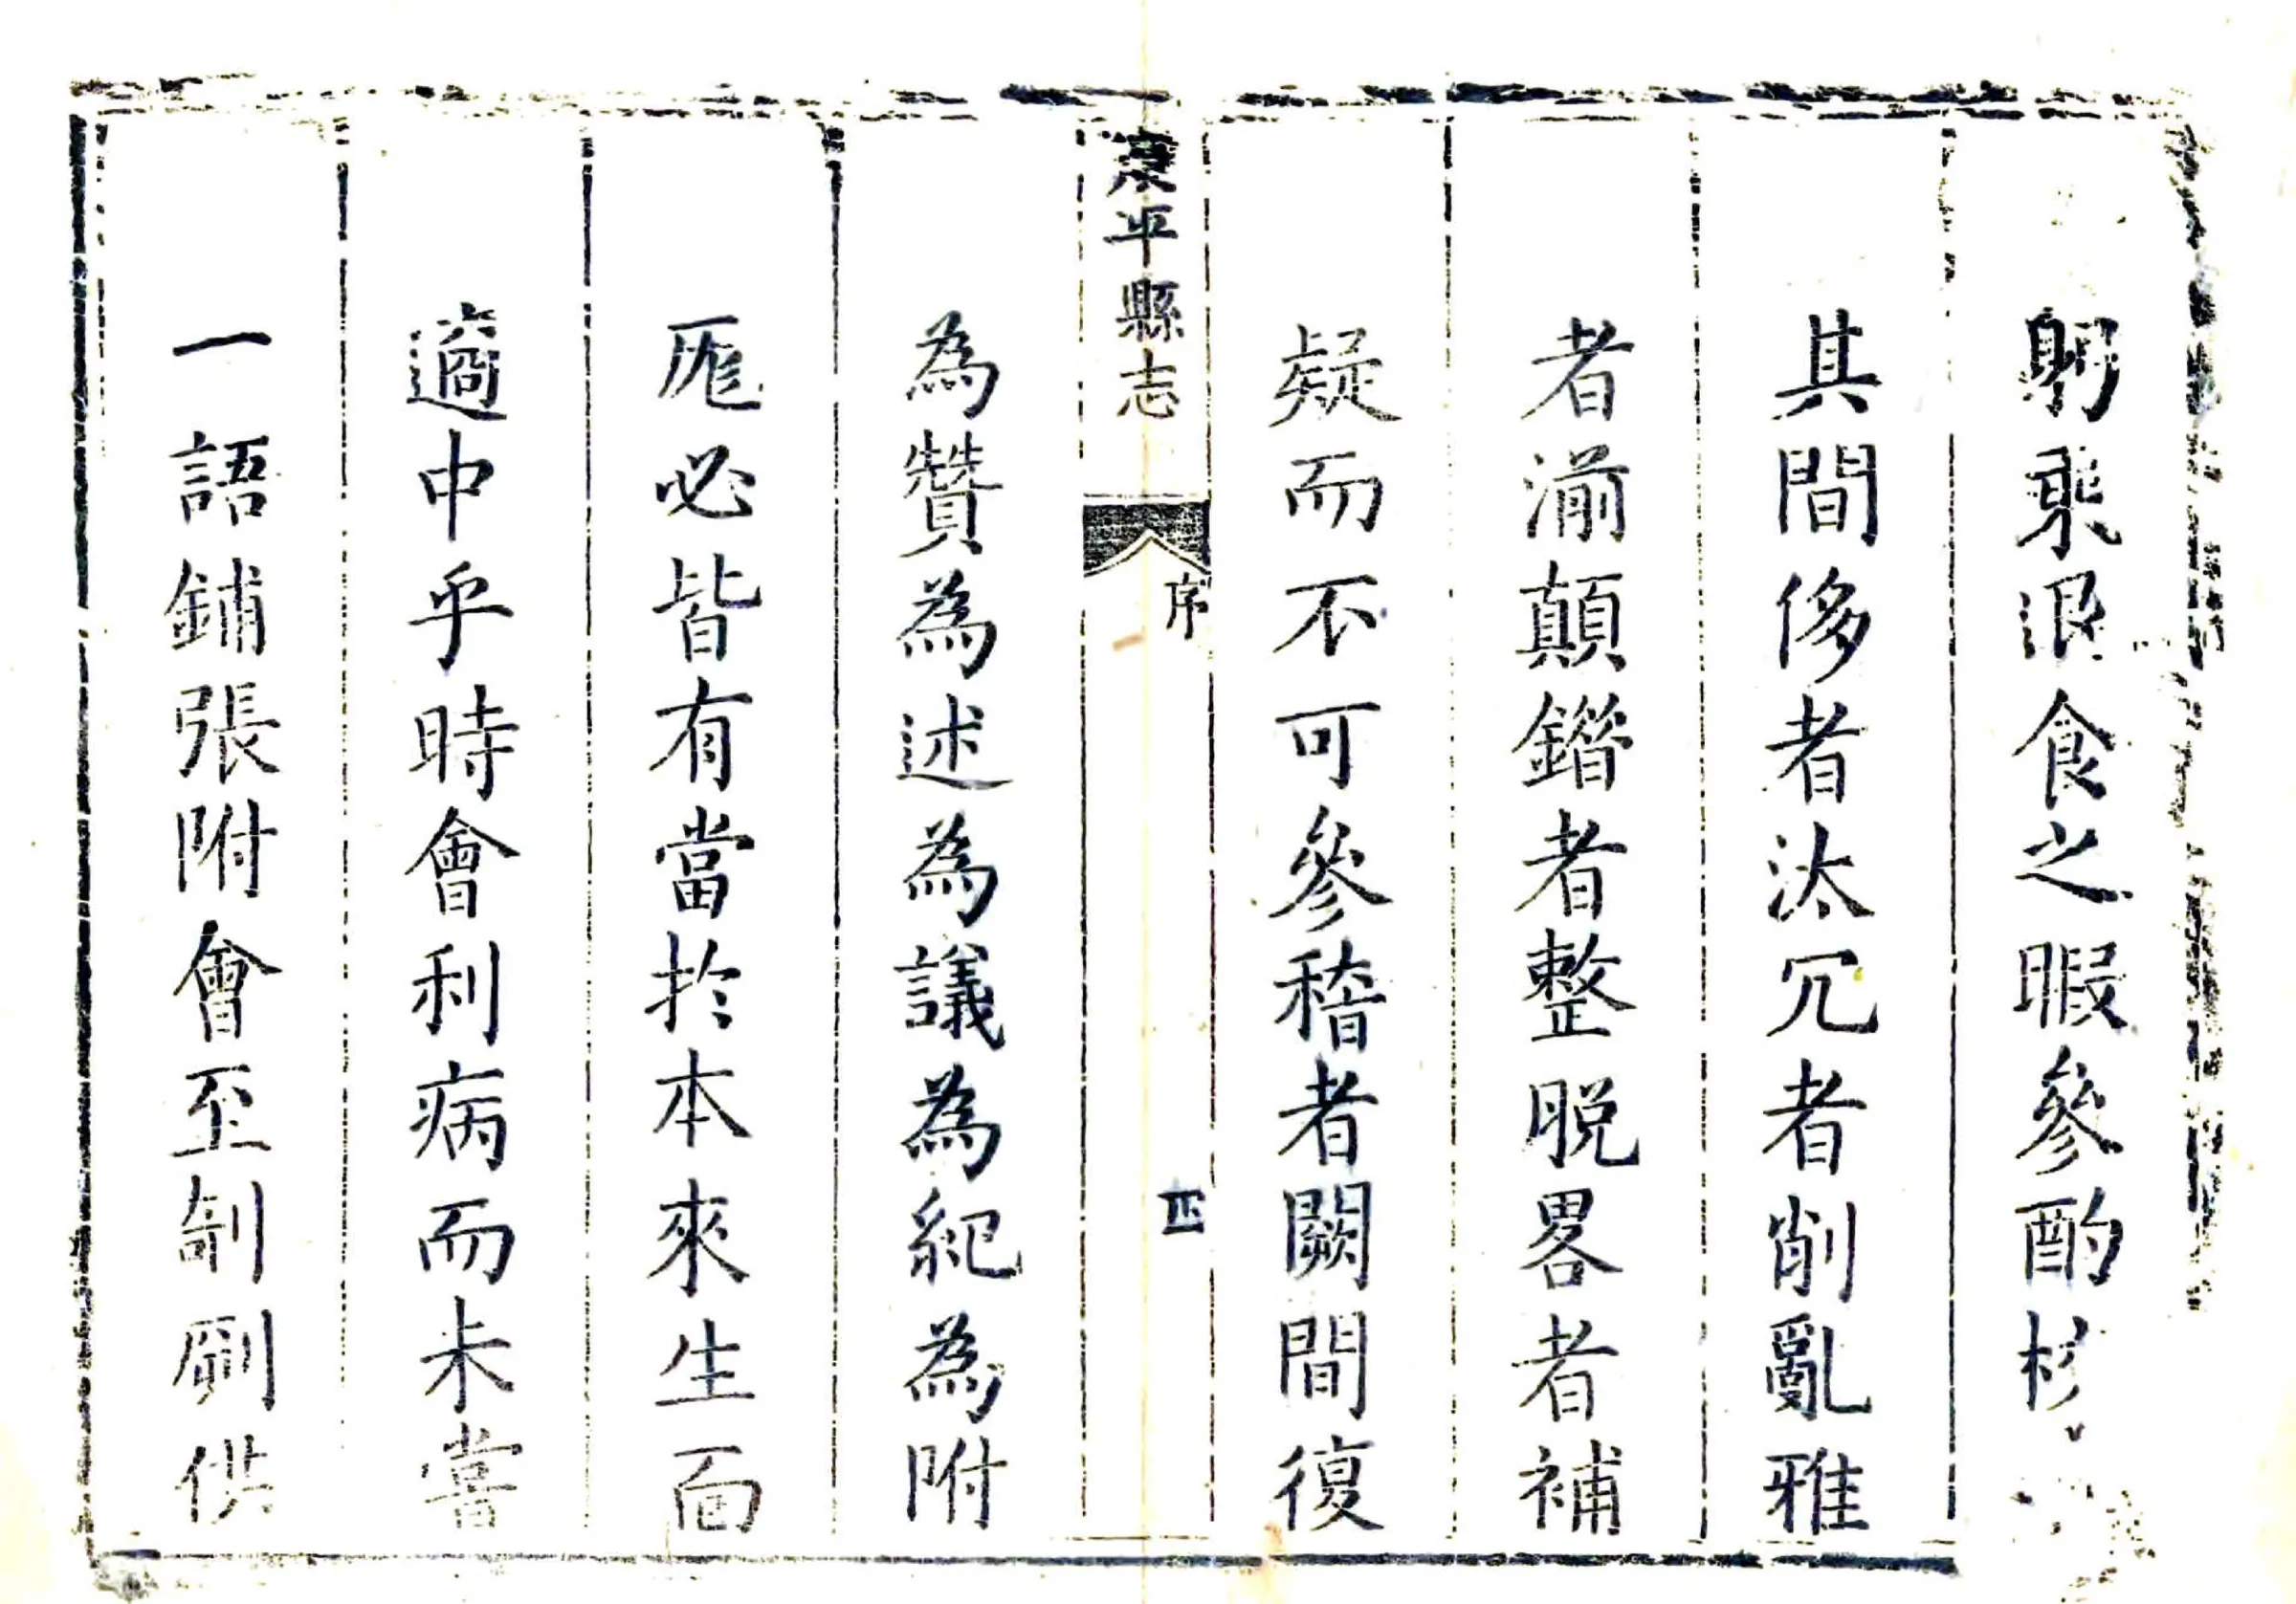 躬乘退食之暇參酌於
其間侈者汰冗者削亂雅
者湔顛錯者整脫畧者補
疑而不可參稽者闕間復
平縣志
序
四
為贊為述為議為紀為附
匪必皆有當於本來生面
適中乎時會利病而未嘗
一語鋪張附會至剞劂供